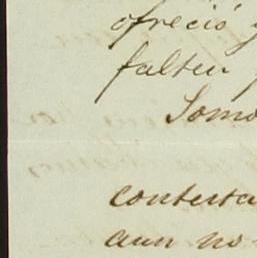 ofreció
falten
Somo
contesta
aun no